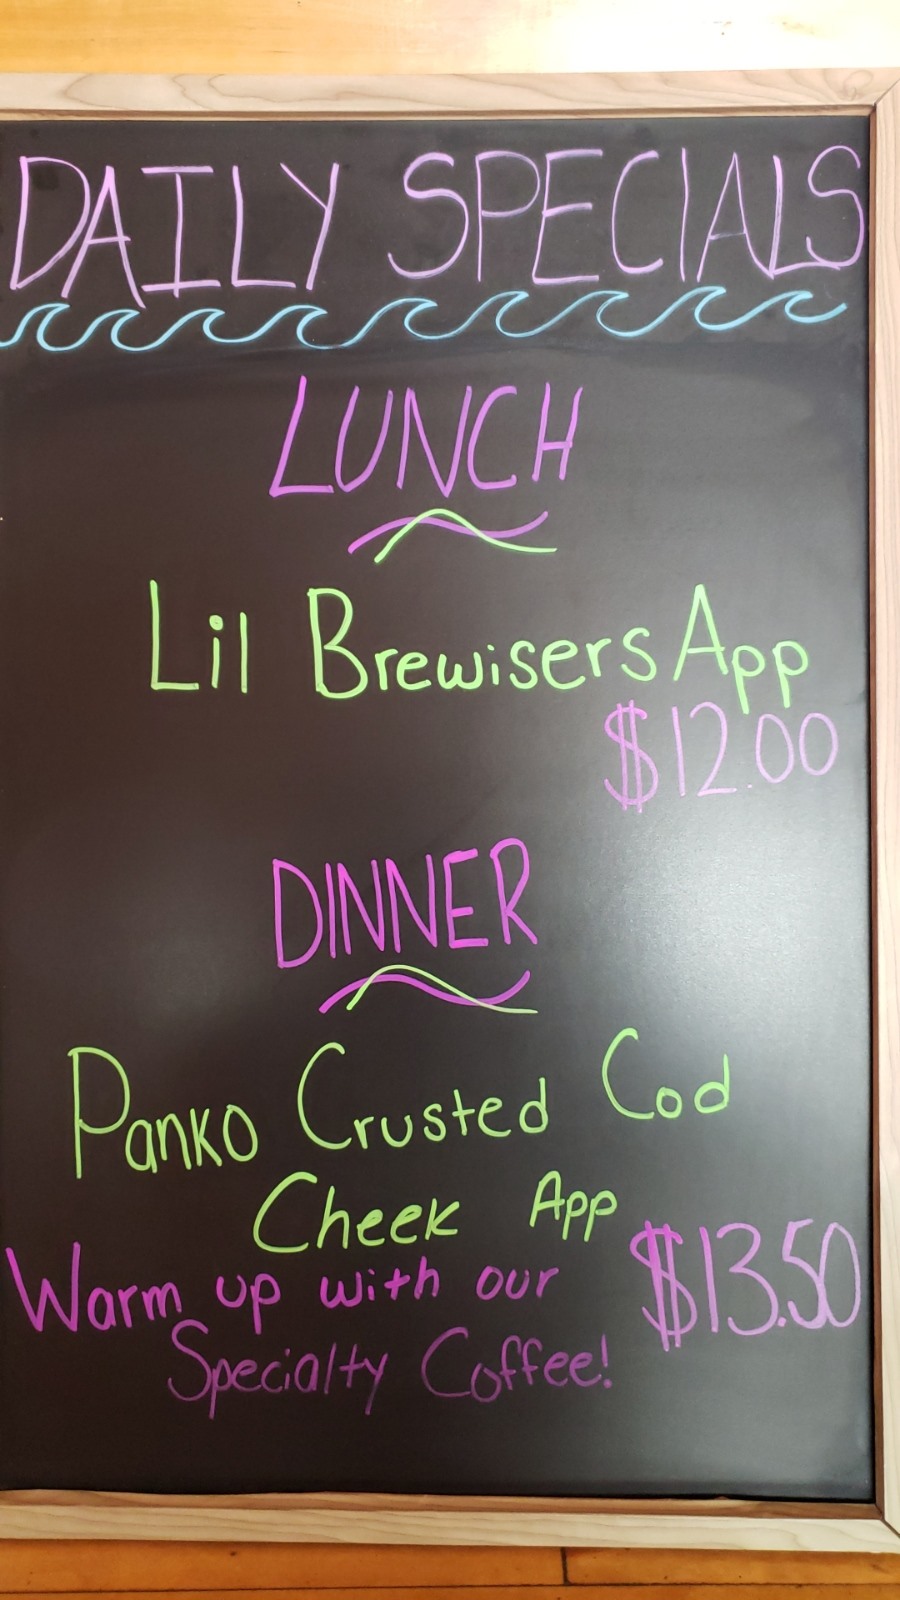 DAILY SPECIALS
LUNCH
Lil Brewisers App
$12.00
DINNER
Panko Crusted Cod
Cheek App
$13.50
Warm up with our
Specialty Coffee!